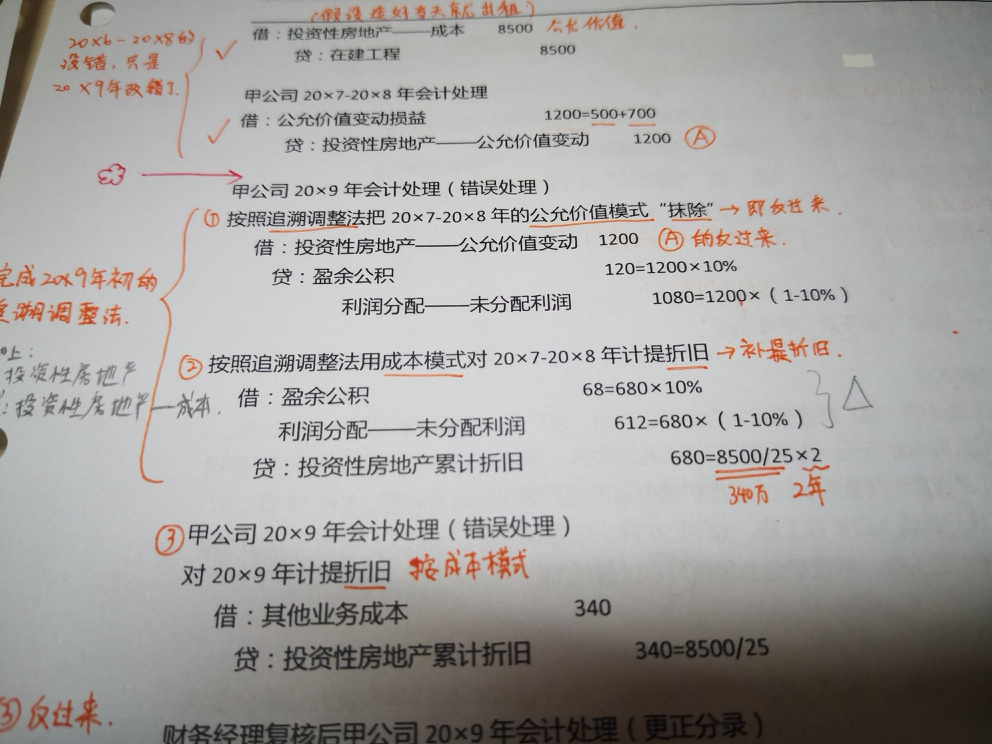 (假设造好当天就出租)
借：投资性房地产——成本 8500 公允价值.
贷：在建工程 8500
20×6-20×8的
没错,只是
20×9年改错了.
甲公司 20×7-20×8 年会计处理
借：公允价值变动损益 1200=500+700
贷：投资性房地产——公允价值变动 1200 Ⓐ
甲公司 20×9 年会计处理（错误处理）
① 按照追溯调整法把 20×7-20×8 年的公允价值模式“抹除” → 即反过来.
借：投资性房地产——公允价值变动 1200 Ⓐ的反过来.
贷：盈余公积 120=1200×10%
利润分配——未分配利润 1080=1200×（1-10%）
完成20×9年初的
追溯调整法.
上:
投资性房地产
:投资性房地产—成本.
② 按照追溯调整法用成本模式对 20×7-20×8 年计提折旧 → 补提折旧.
借：盈余公积 68=680×10%
利润分配——未分配利润 612=680×（1-10%） △
贷：投资性房地产累计折旧 680=8500/25×2
340万 2年
③ 甲公司 20×9 年会计处理（错误处理）
对 20×9 年计提折旧 按成本模式
借：其他业务成本 340
贷：投资性房地产累计折旧 340=8500/25
③反过来.
财务经理复核后甲公司 20×9 年会计处理（更正分录）